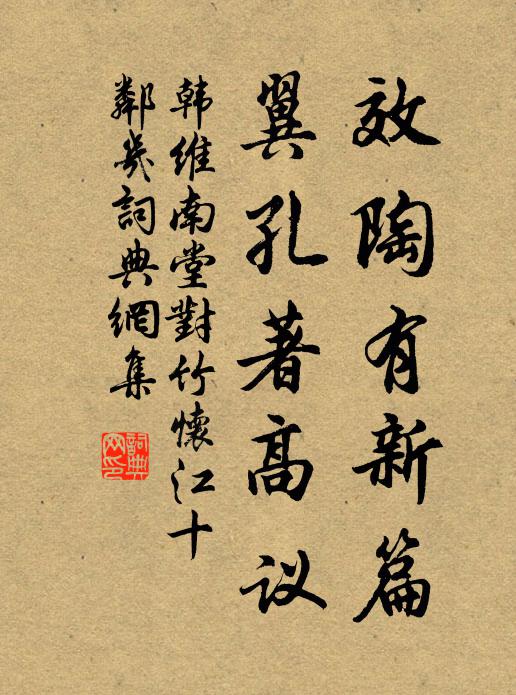 效陶有新篇
翼孔著高议
韩维南堂對竹懷江十
鄰幾詞典網集
詞典网印